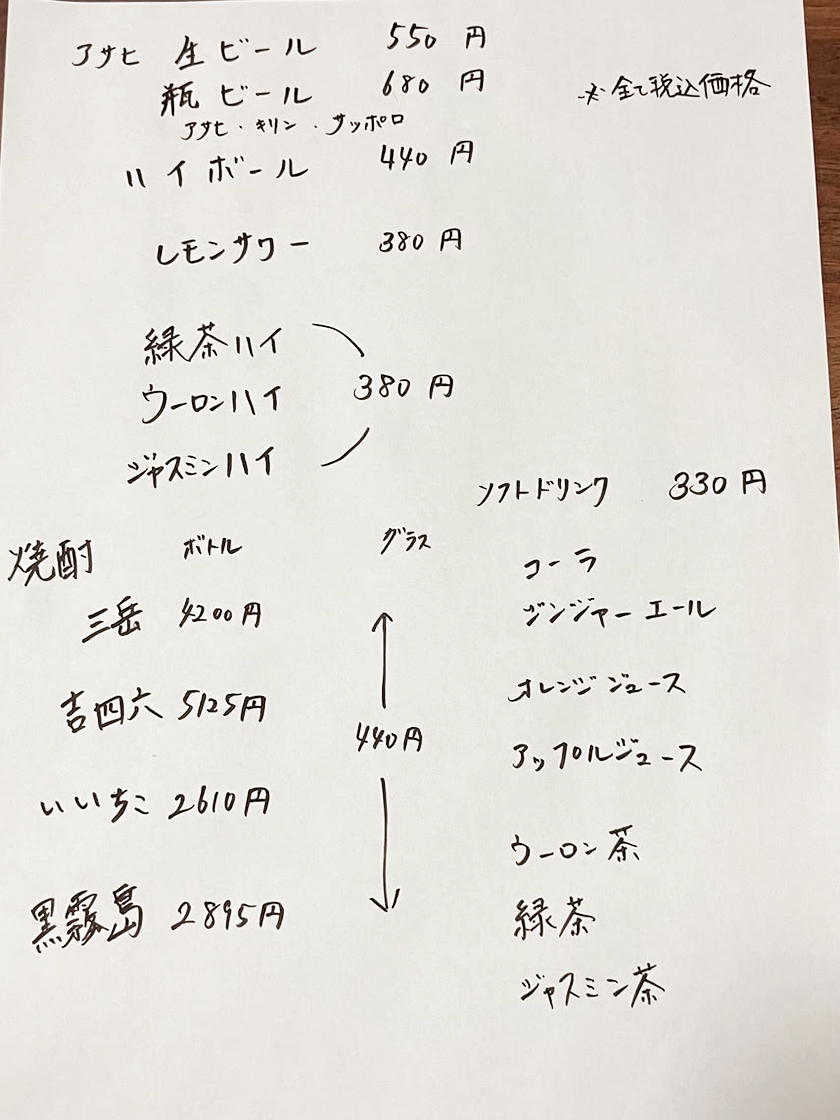 アサヒ 生ビール 550円
瓶ビール 680円
※全て税込価格
アサヒ・キリン・サッポロ
ハイボール 440円
レモンサワー 380円
緑茶ハイ
ウーロンハイ 380円
ジャスミンハイ
焼酎 ボトル グラス
三岳 4200円
吉四六 5125円
440円
いいちこ 2610円
黒霧島 2895円
ソフトドリンク 330円
コーラ
ジンジャーエール
オレンジジュース
アップルジュース
ウーロン茶
緑茶
ジャスミン茶